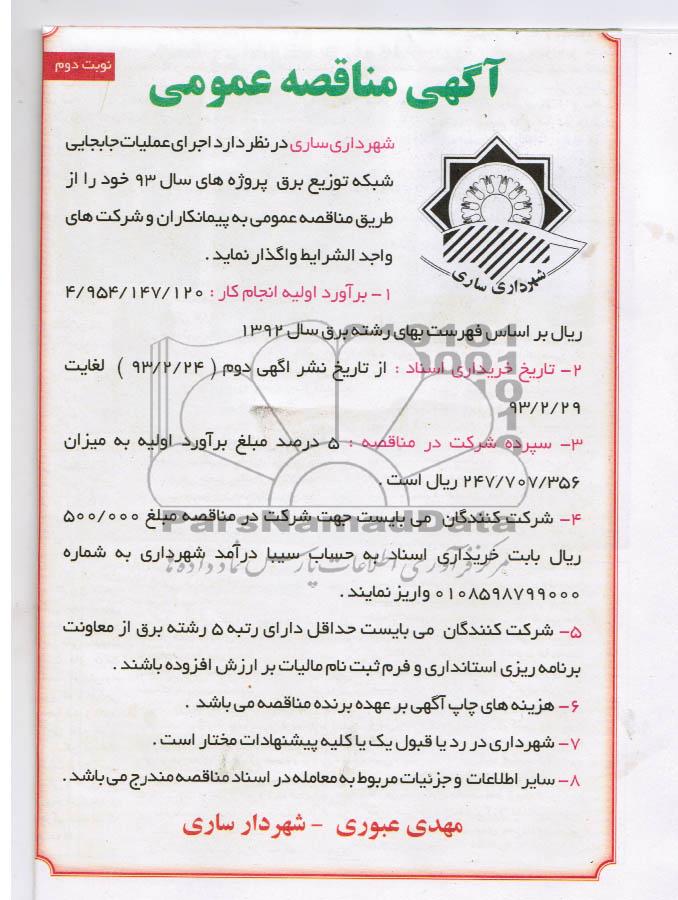 نوبت دوم
آگهی مناقصه عمومی
شهرداری ساری در نظر دارد اجرای عملیات جابجایی
شبکه توزیع برق پروژه های سال ۹۳ خود را از
طریق مناقصه عمومی به پیمانکاران و شرکت های
واجد الشرایط واگذار نماید .
شهرداری ساری
۱- برآورد اولیه انجام کار : ۴/۹۵۴/۱۴۷/۱۲۰
ریال بر اساس فهرست بهای رشته برق سال ۱۳۹۲
۲- تاریخ خریداری اسناد : از تاریخ نشر اگهی دوم ( ۹۳/۲/۲۴ ) لغایت
۹۳/۲/۲۹
۳- سپرده شرکت در مناقصه : ۵ درصد مبلغ برآورد اولیه به میزان
۲۴۷/۷۰۷/۳۵۶ ریال است .
۴- شرکت کنندگان می بایست جهت شرکت در مناقصه مبلغ ۵۰۰/۰۰۰
ParsNamadData
ریال بابت خریداری اسناد به حساب سیبا درآمد شهرداری به شماره
مرکز فرآوری اطلاعات پارس نماد داده ها
۰۱۰۸۵۹۸۷۹۹۰۰۰ واریز نمایند .
۵- شرکت کنندگان می بایست حداقل دارای رتبه ۵ رشته برق از معاونت
برنامه ریزی استانداری و فرم ثبت نام مالیات بر ارزش افزوده باشند .
۶- هزینه های چاپ آگهی بر عهده برنده مناقصه می باشد .
۷- شهرداری در رد یا قبول یک یا کلیه پیشنهادات مختار است .
۸- سایر اطلاعات و جزئیات مربوط به معامله در اسناد مناقصه مندرج می باشد .
مهدی عبوری - شهردار ساری